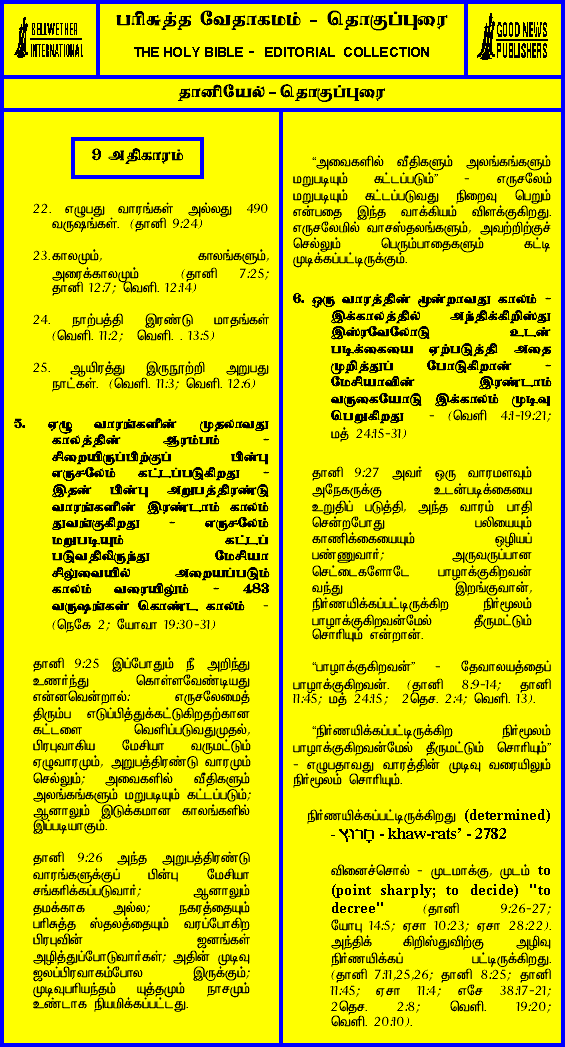 BELLWETHER
INTERNATIONAL
பரிசுத்த வேதாகமம் - தொகுப்புரை
THE HOLY BIBLE - EDITORIAL COLLECTION
GOOD NEWS
PUBLISHERS
தானியேல் - தொகுப்புரை
9 அதிகாரம்
22. எழுபது வாரங்கள் அல்லது 490
வருஷங்கள். (தானி 9:24)
23.காலமும், காலங்களும்,
அரைக்காலமும் (தானி 7:25;
தானி 12:7; வெளி. 12:14)
24. நாற்பத்தி இரண்டு மாதங்கள்
(வெளி. 11:2; வெளி. . 13:5)
25. ஆயிரத்து இருநூற்றி அறுபது
நாட்கள். (வெளி. 11:3; வெளி. 12:6)
5. ஏழு வாரங்களின் முதலாவது
காலத்தின் ஆரம்பம் -
சிறையிருப்பிற்குப் பின்பு
எருசலேம் கட்டப்படுகிறது -
இதன் பின்பு அறுபத்திரண்டு
வாரங்களின் இரண்டாம் காலம்
துவங்குகிறது - எருசலேம்
மறுபடியும் கட்டப்
படுவதிலிருந்து மேசியா
சிலுவையில் அறையப்படும்
காலம் வரையிலும் - 483
வருஷங்கள் கொண்ட காலம் -
(நெகே 2; யோவா 19:30-31)
தானி 9:25 இப்போதும் நீ அறிந்து
உணர்ந்து கொள்ளவேண்டியது
என்னவென்றால்: எருசலேமைத்
திரும்ப எடுப்பித்துக்கட்டுகிறதற்கான
கட்டளை வெளிப்படுவதுமுதல்,
பிரபுவாகிய மேசியா வருமட்டும்
ஏழுவாரமும், அறுபத்திரண்டு வாரமும்
செல்லும்; அவைகளில் வீதிகளும்
அலங்கங்களும் மறுபடியும் கட்டப்படும்;
ஆனாலும் இடுக்கமான காலங்களில்
இப்படியாகும்.
தானி 9:26 அந்த அறுபத்திரண்டு
வாரங்களுக்குப் பின்பு மேசியா
சங்கரிக்கப்படுவார்; ஆனாலும்
தமக்காக அல்ல; நகரத்தையும்
பரிசுத்த ஸ்தலத்தையும் வரப்போகிற
பிரபுவின் ஜனங்கள்
அழித்துப்போடுவார்கள்; அதின் முடிவு
ஜலப்பிரவாகம்போல இருக்கும்;
முடிவுபரியந்தம் யுத்தமும் நாசமும்
உண்டாக நியமிக்கப்பட்டது.
"அவைகளில் வீதிகளும் அலங்கங்களும்
மறுபடியும் கட்டப்படும்" - எருசலேம்
மறுபடியும் கட்டப்படுவது நிறைவு பெறும்
என்பதை இந்த வாக்கியம் விளக்குகிறது.
எருசலேமில் வாசஸ்தலங்களும், அவற்றிற்குச்
செல்லும் பெரும்பாதைகளும் கட்டி
முடிக்கப்பட்டிருக்கும்.
6. ஒரு வாரத்தின் மூன்றாவது காலம் -
இக்காலத்தில் அந்திக்கிறிஸ்து
இஸ்ரவேலோடு உடன்
படிக்கையை ஏற்படுத்தி அதை
முறித்துப் போடுகிறான் -
மேசியாவின் இரண்டாம்
வருகையோடு இக்காலம் முடிவு
பெறுகிறது - (வெளி 4:1-19:21;
மத் 24:15-31)
தானி 9:27 அவர் ஒரு வாரமளவும்
அநேகருக்கு உடன்படிக்கையை
உறுதிப் படுத்தி, அந்த வாரம் பாதி
சென்றபோது பலியையும்
காணிக்கையையும் ஒழியப்
பண்ணுவார்; அருவருப்பான
செட்டைகளோடே பாழாக்குகிறவன்
வந்து இறங்குவான்,
நிர்ணயிக்கப்பட்டிருக்கிற நிர்மூலம்
பாழாக்குகிறவன்மேல் தீருமட்டும்
சொரியும் என்றான்.
"பாழாக்குகிறவன்" - தேவாலயத்தைப்
பாழாக்குகிறவன். (தானி 8:9-14; தானி
11:45; மத் 24:15; 2தெச. 2:4; வெளி. 13).
"நிர்ணயிக்கப்பட்டிருக்கிற நிர்மூலம்
பாழாக்குகிறவன்மேல் தீருமட்டும் சொரியும்"
- எழுபதாவது வாரத்தின் முடிவு வரையிலும்
நிர்மூலம் சொரியும்.
நிர்ணயிக்கப்பட்டிருக்கிறது (determined)
- חָרוּץ - khaw-rats' - 2782
வினைச்சொல் - முடமாக்கு, முடம் to
(point sharply; to decide) "to
decree" (தானி 9:26-27;
யோபு 14:5; ஏசா 10:23; ஏசா 28:22).
அந்திக் கிறிஸ்துவிற்கு அழிவு
நிர்ணயிக்கப் பட்டிருக்கிறது.
(தானி 7:11,25,26; தானி 8:25; தானி
11:45; ஏசா 11:4; எசே 38:17-21;
2தெச. 2:8; வெளி. 19:20;
வெளி. 20:10).